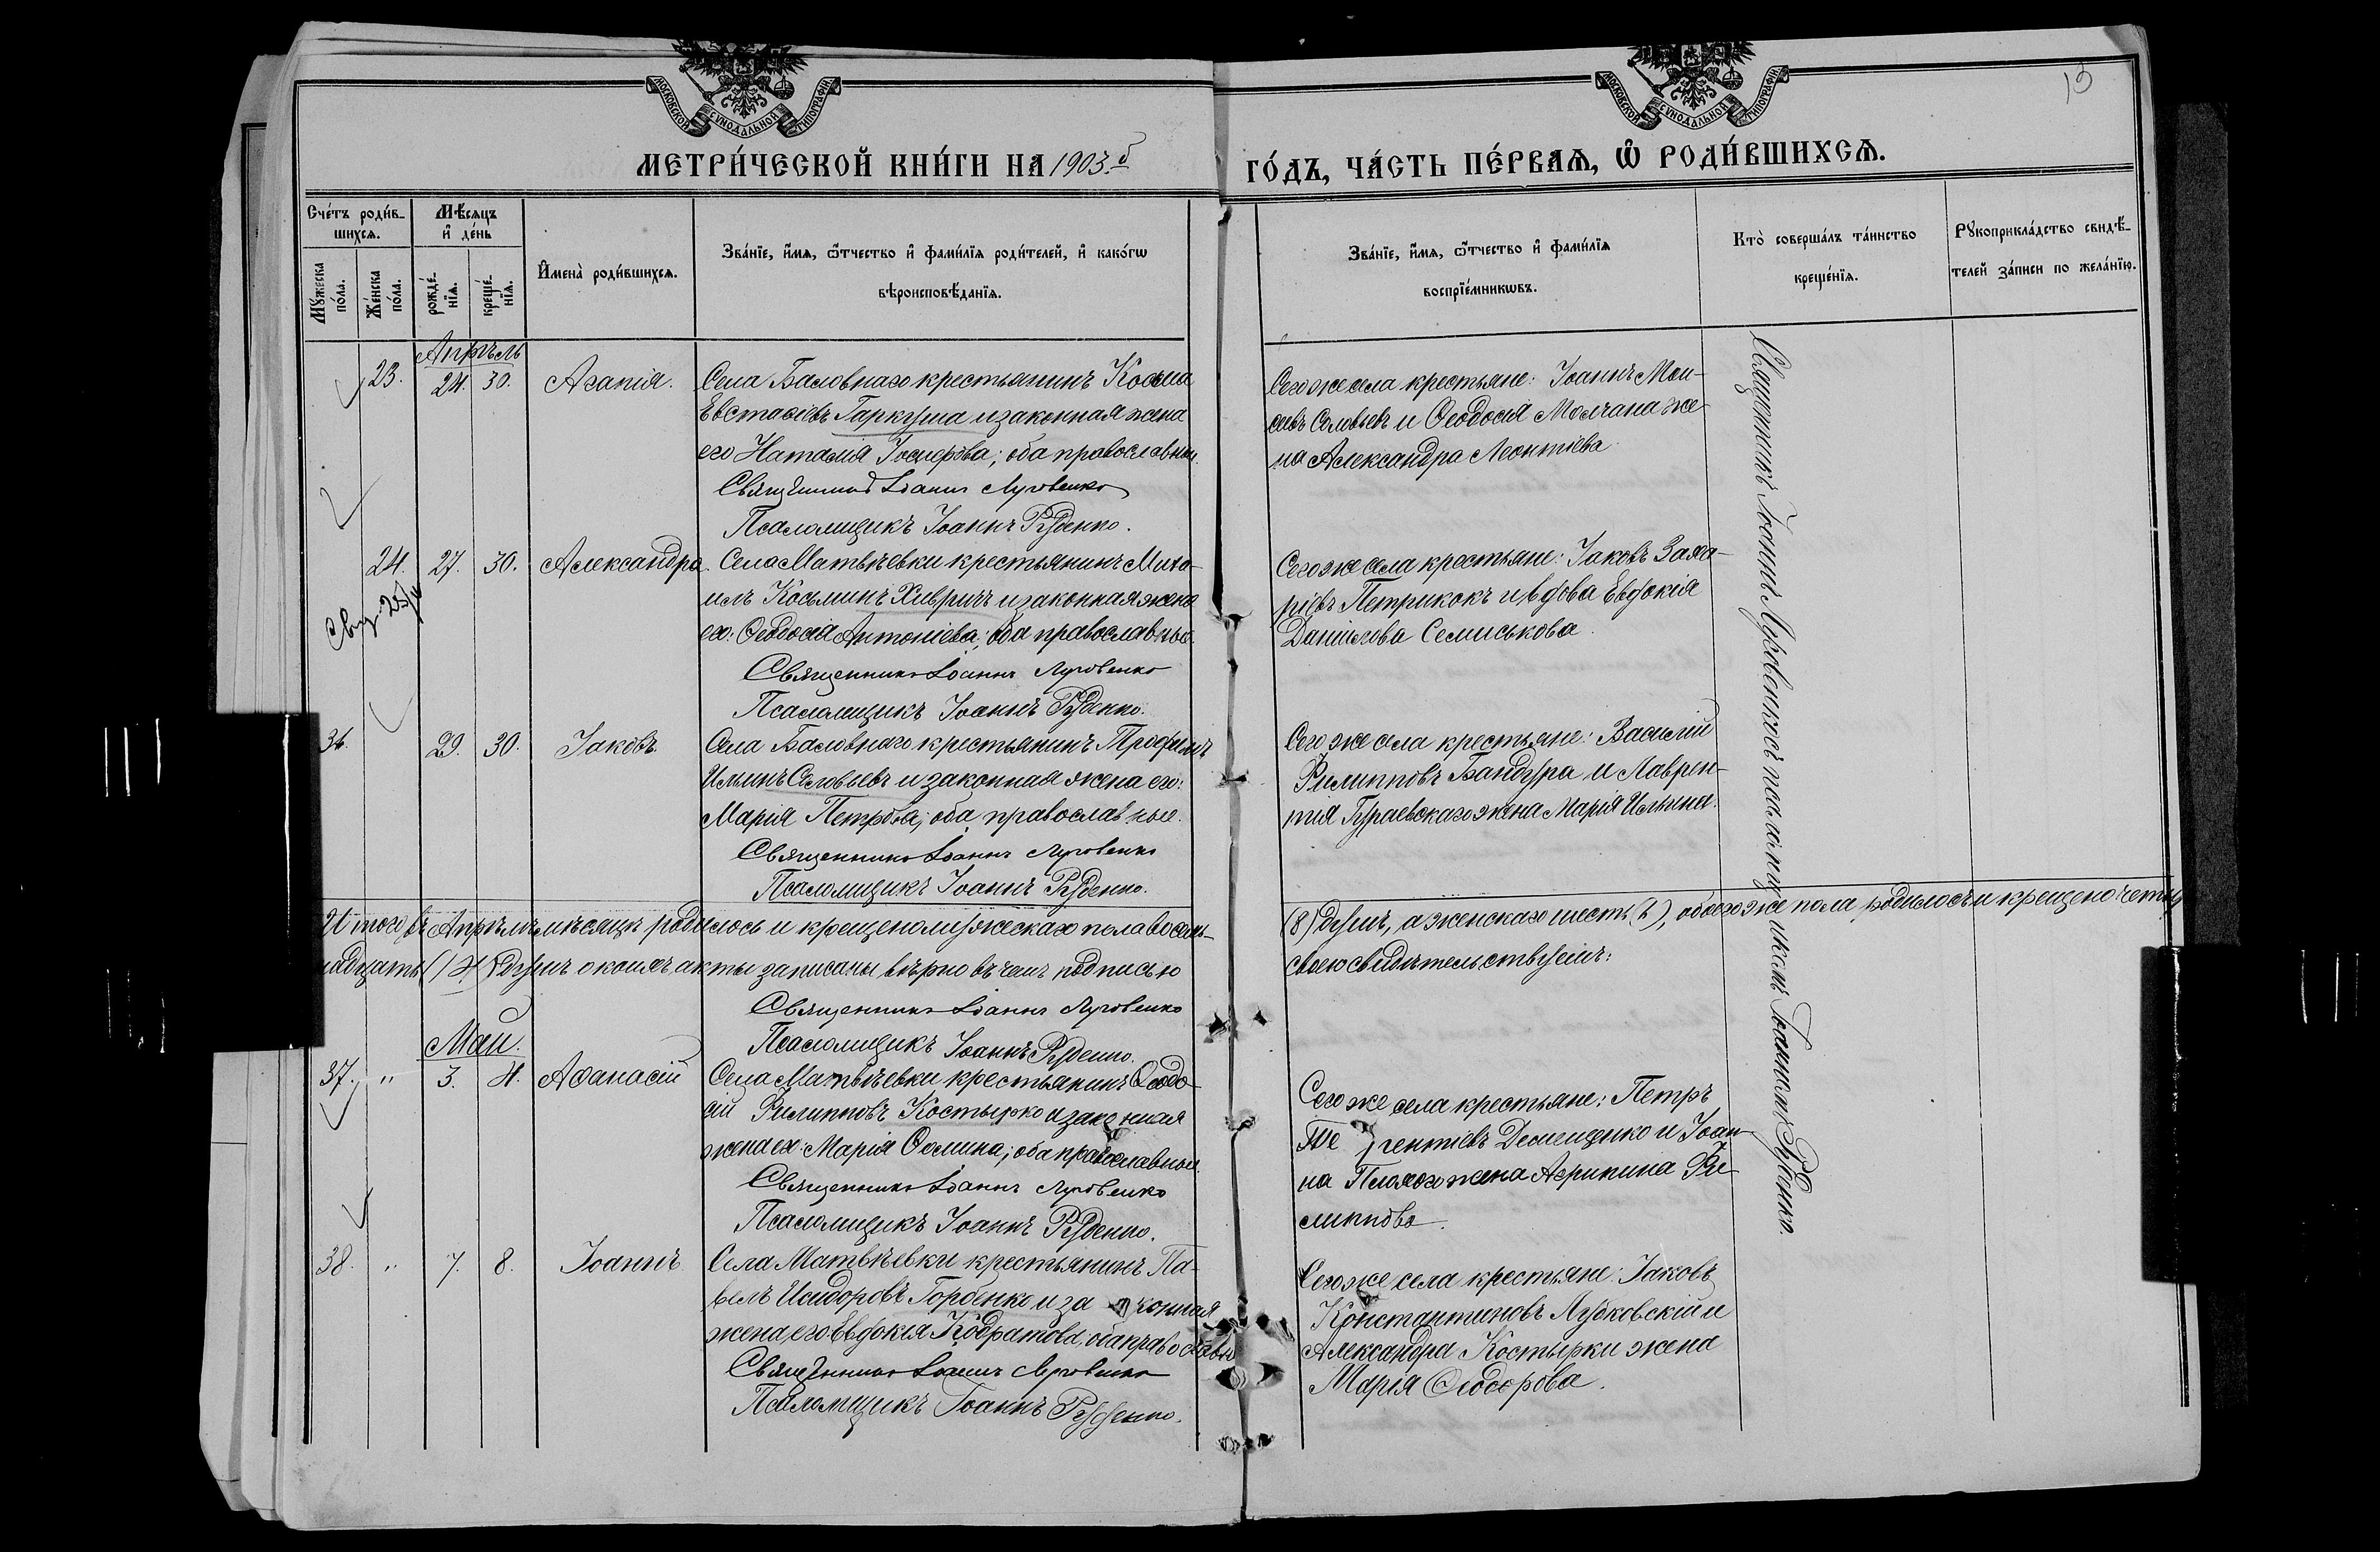 МОСКОВСКОЙ СУНОДАЛЬНОЙ ТИПОГРАФІИ
МОСКОВСКОЙ СУНОДАЛЬНОЙ ТИПОГРАФІИ
15
МЕТРИ́ЧЕСКОЙ КНИ́ГИ НА 1903.й
ГО́ДЪ, ЧА́СТЬ ПЕ́РВАѦ, Ѡ҆ РОДИ́ВШИХСѦ.
Сче́тъ роди́в-
шихсѧ.
Мѣ́сѧцъ
и҆ де́нь
Мꙋ́жеска
по́ла.
Же́нска
по́ла.
рожде́-
нїѧ.
креще́-
нїѧ.
И҆мена̀ роди́вшихсѧ.
Зва́нїе, и҆́мѧ, ѻ҆́тчество и҆ фами́лїѧ роди́телей, и҆ како́гѡ
вѣроисповѣ́данїѧ.
Зва́нїе, и҆́мѧ, ѻ҆́тчество и҆ фами́лїѧ
воспрїе́мникѡвъ.
Кто̀ соверша́лъ та́инство
креще́нїѧ.
Рꙋкоприкла́дство свидѣ́-
телей за́писи по жела́нїю.
Апрѣль
23. 24. 30. Агапія.
Села Баловнаго крестьянинъ Косьма
Евстафіевъ Гаркуша и законная жена
его Наталія; оба православные.
Священникъ Іоаннъ Луговенко
Псаломщикъ Іоаннъ Руденко.
Сего же села крестьяне: Іоаннъ Мои-
сеевъ Соловьевъ и Ѳеодосія Молчана же-
на Александра Леонтіева
24. 27. 30. Александра.
Села Матвѣевки крестьянинъ Миха-
илъ Косьминъ Хивричъ и законная жена
его: Ѳеодосія Антоніева; оба православные.
Священникъ Іоаннъ Луговенко
Псаломщикъ Іоаннъ Руденко.
Сего же села крестьяне: Іаковъ Заха-
ріевъ Петрикокъ и вдова Евдокія
Даніилова Семиськова.
36. 29. 30. Іаковъ
Села Баловнаго крестьянинъ Трофимъ
Ильинъ Соловьевъ и законная жена его:
Марія Петрова; оба православные.
Священникъ Іоаннъ Луговенко
Псаломщикъ Іоаннъ Руденко.
Сего же села крестьяне: Василій
Филипповъ Бандура и Лаврен-
тія Гураевскаго жена Марія Ильина.
Итого въ Апрѣлѣ мѣсяцѣ родилось и крещено мужескаго пола восемь
(8) душъ, а женскаго шесть (6), обоего же пола родилось и крещено четыр
надцать (14) душъ о коихъ акты записаны вѣрно въ чемъ подписью
своею свидѣтельствуемъ:
Священникъ Іоаннъ Луговенко
Псаломщикъ Іоаннъ Руденко.
Май.
37. " 3. 4. Аѳанасій
Села Матвѣевки крестьянинъ Ѳеодо-
сій Филипповъ Костырко и законная
жена его: Марія Ѳомина; оба православные
Священникъ Іоаннъ Луговенко
Псаломщикъ Іоаннъ Руденко.
Сего же села крестьяне: Петръ
Демещенко и Іоан-
на жена Агрипина Фи-
липпова.
38. " 7. 8. Іоаннъ
Села Матвѣевки крестьянинъ Па-
велъ Исидоровъ Горбенко и законная
жена его Евдокія Кодратова; оба православн
Священникъ Іоаннъ Луговенко
Псаломщикъ Іоаннъ Руденко.
Сего же села крестьяне: Іаковъ
Константиновъ Лубковскій и
Александра Костырки жена
Марія Ѳеодорова.
Священникъ Іоаннъ Луговенко съ псаломщикомъ Іоанномъ Руденко.